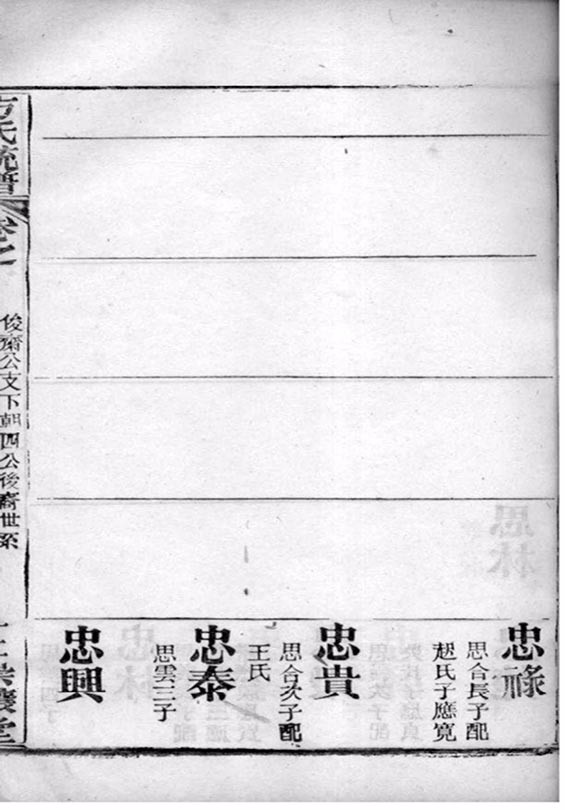 忠祿
思合長子配
趙氏子應寬
忠貴
思合次子配
王氏
忠泰
思雲三子
忠興
方氏統譜
卷之
俊齋公支下朝四公後裔世系